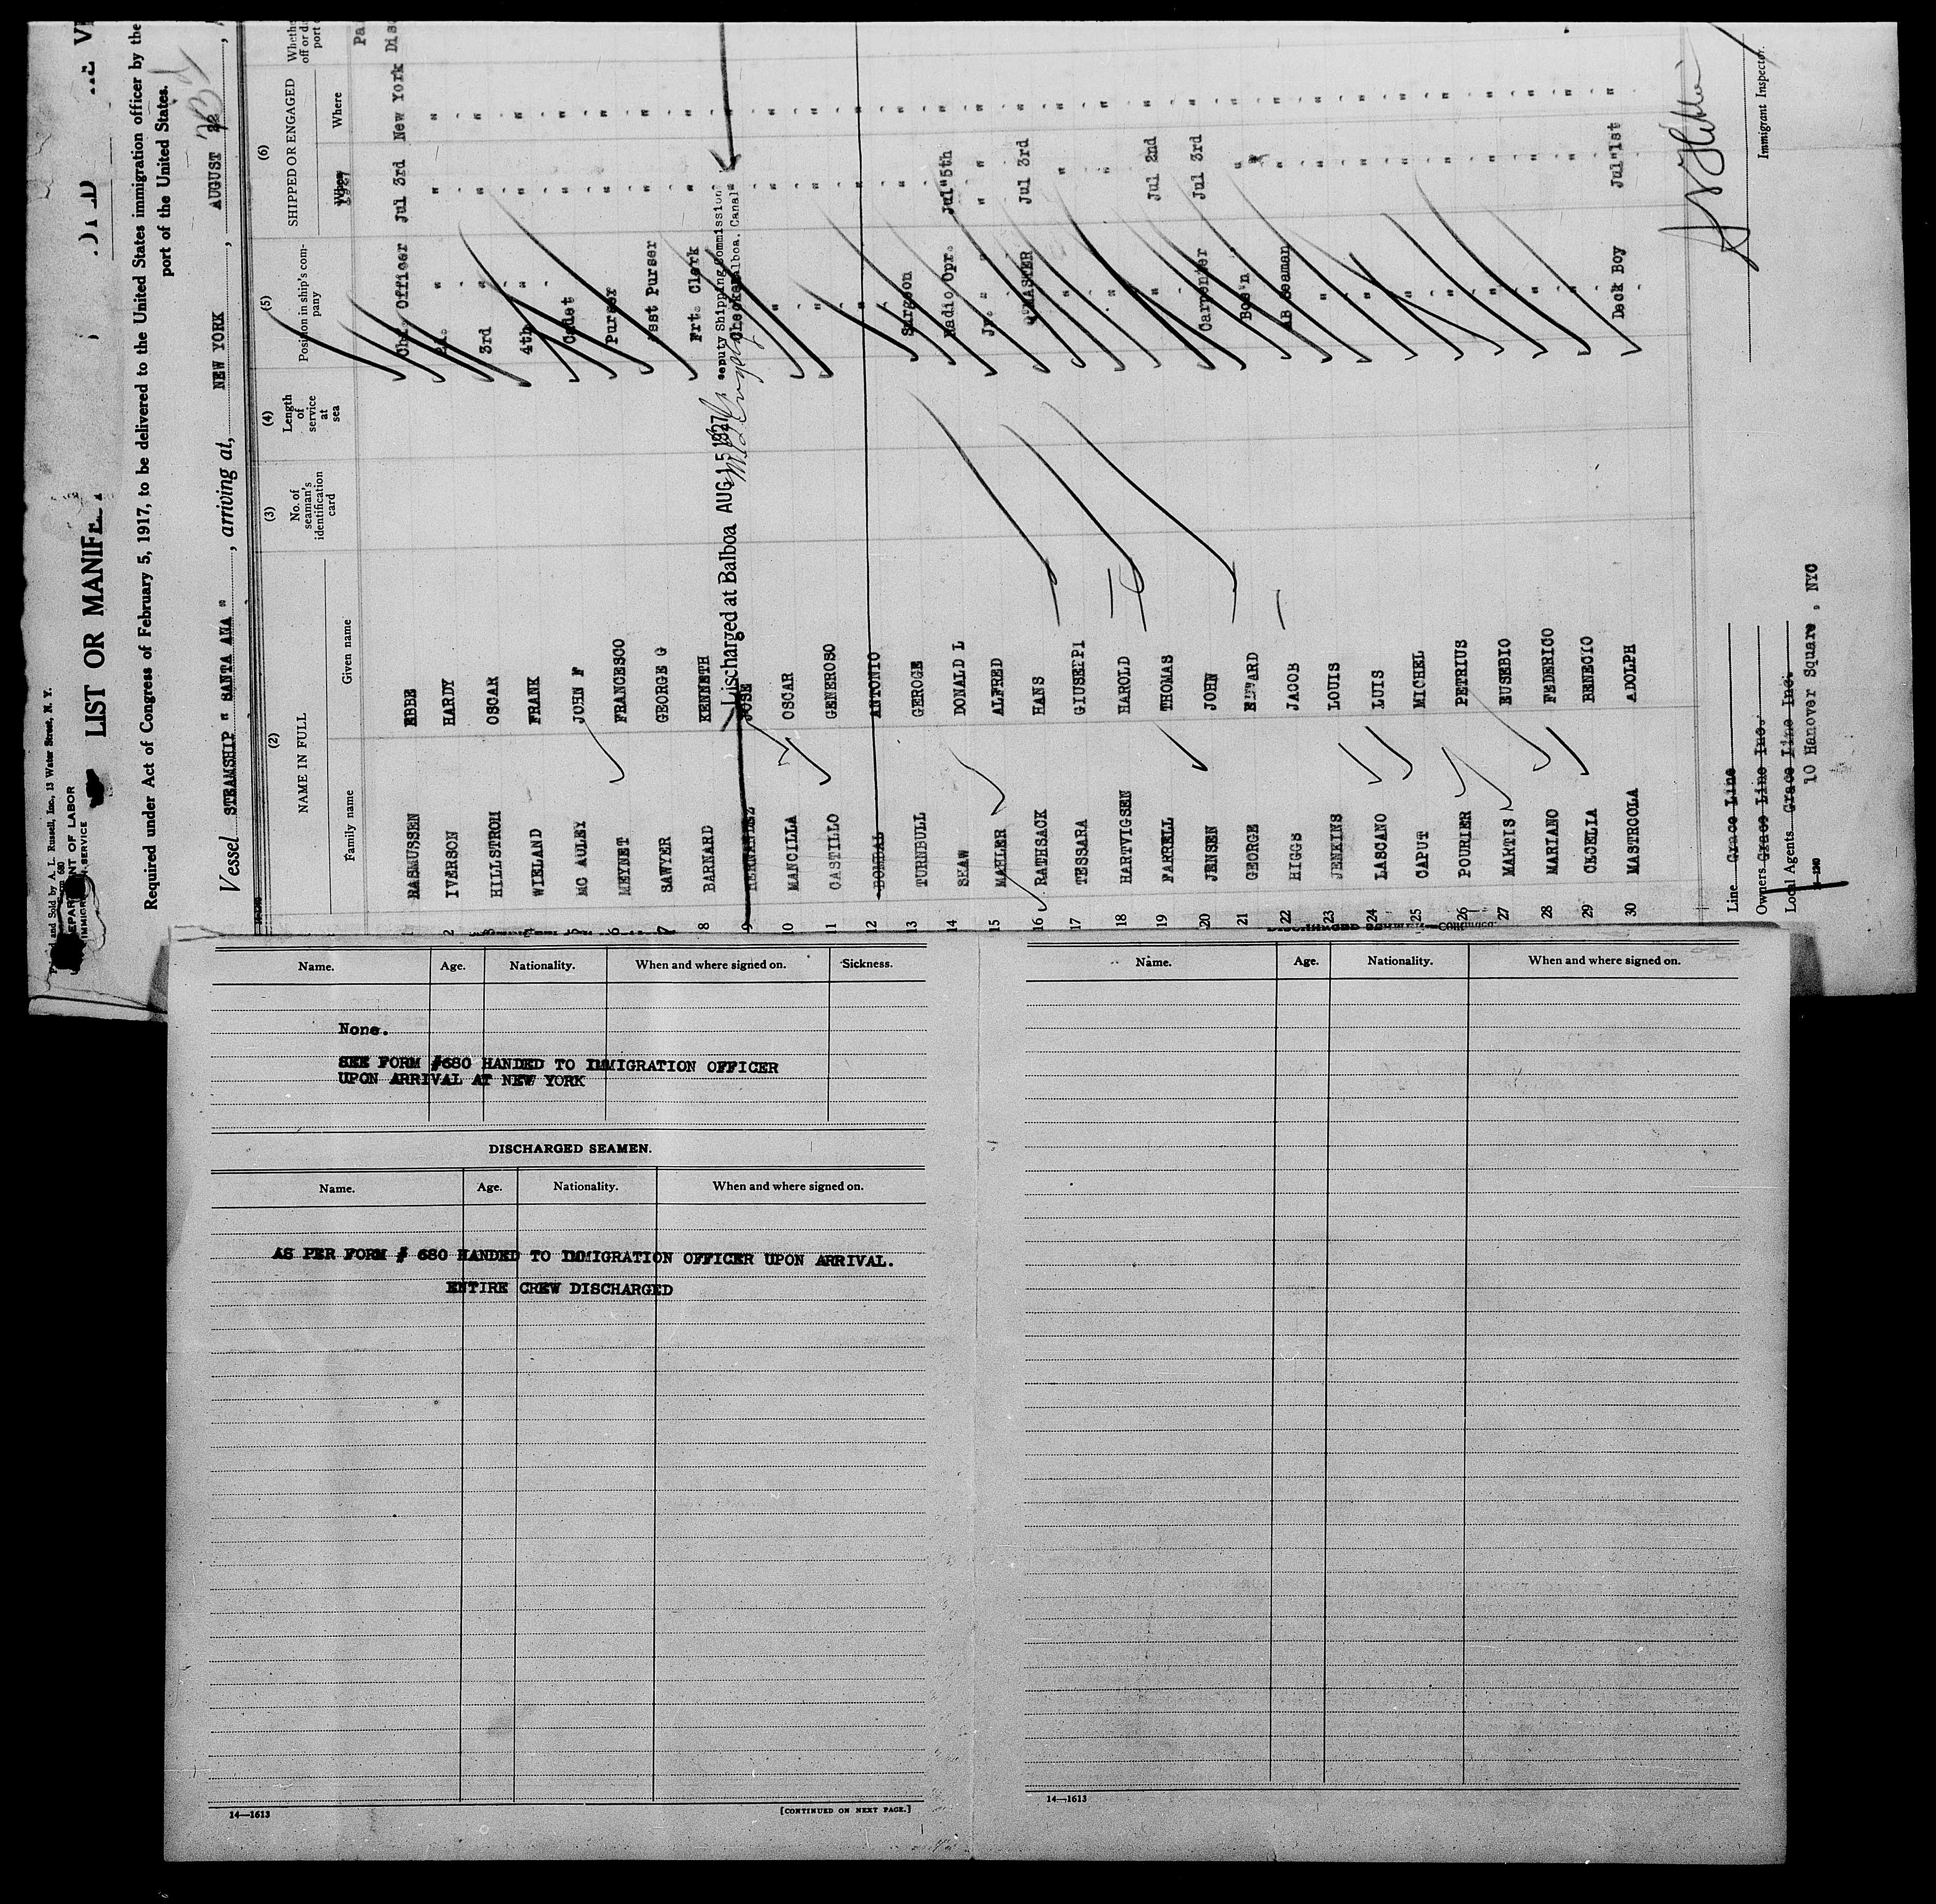 Printed and Sold by A. L. Russell, Inc., 13 Water Street, N. Y.
Form 680
DEPARTMENT OF LABOR
IMMIGRATION SERVICE
LIST OR MANIFE
Required under Act of Congress of February 5, 1917, to be delivered to the United States immigration officer by the
port of the United States.
Vessel STEAMSHIP " SANTA ANA ", arriving at, NEW YORK, AUGUST
(2) (3) (4) (5) (6)
NAME IN FULL No. of seaman's identification card Length of service at sea Position in ship's company SHIPPED OR ENGAGED
Family name Given name When Where
1927
RASMUSSEN EBBE Ch. Officer Jul 3rd New York
2 IVERSON HARDY 2d. " "
3 HILLSTROM OSCAR 3rd " " "
4 WIELAND FRANK 4th " " "
5 MC AULEY JOHN F Cadet " "
6 MEYNET FRANCESCO Purser " "
7 SAWYER GEORGE G Asst Purser " "
8 BARNARD KENNETH Frt. Clerk " "
9 HERNANDEZ JOSE Checker " "
Discharged at Balboa AUG 15 1927
Deputy Shipping Commission
Balboa. Canal
10 MANCILLA OSCAR " " "
11 CASTILLO GENEROSO " " "
12 DOMBAL ANTONIO " " "
13 TURNBULL GEROGE Surgeon " "
14 SHAW DONALD L Radio Opr. Jul 5th "
15 MAHLER ALFRED Jr. " " "
16 RATHSACK HANS QRMASTER Jul 3rd "
17 TESSARA GIUSEPPI " " "
18 HARTVIGSEN HAROLD " " "
19 FARRELL THOMAS " Jul 2nd "
20 JENSEN JOHN Carpenter Jul 3rd "
21 GEORGE EDWARD Bos'n " "
22 HIGGS JACOB AB Seaman " "
23 JENKINS LOUIS " " "
24 LASCANO LUIS " " "
25 CAPUT MICHEL " " "
26 POURIER PETRIUS " " "
27 MARTIS EUSEBIO " " "
28 MARIANO FEDERICO " " "
29 CECELIA BENECIO " " "
30 MASTROOLA ADOLPH Deck Boy Jul 1st "
Line Grace Line
Owners Grace Line Inc.
Local Agents Grace Line Inc.
10 Hanover Square, NYC
Immigrant Inspector.
Name. Age. Nationality. When and where signed on. Sickness.
None.
SEE FORM #680 HANDED TO IMMIGRATION OFFICER
UPON ARRIVAL AT NEW YORK
DISCHARGED SEAMEN.
Name. Age. Nationality. When and where signed on.
AS PER FORM # 680 HANDED TO IMMIGRATION OFFICER UPON ARRIVAL.
ENTIRE CREW DISCHARGED
14—1613
[CONTINUED ON NEXT PAGE.]
DISCHARGED SEAMEN—Continued
Name. Age. Nationality. When and where signed on.
14—1613